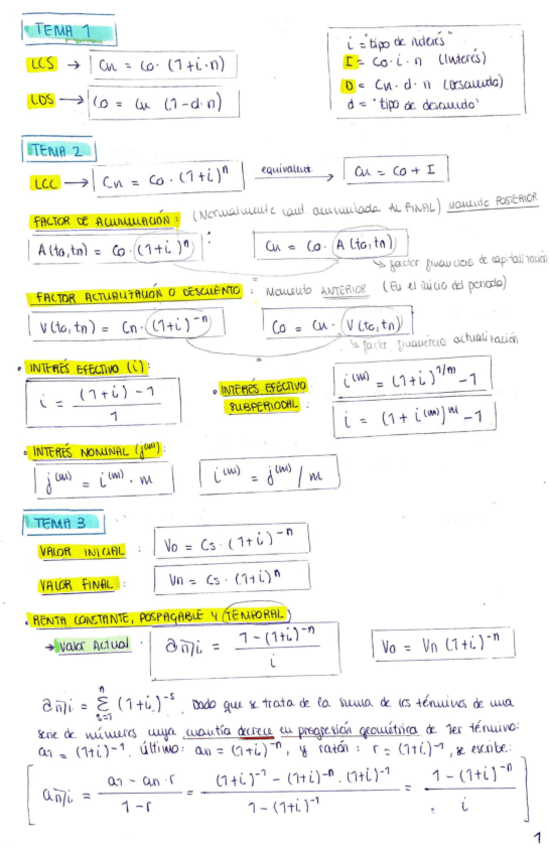 TEMA 1
LCS → Cn = Co · (1+i·n)
LDS → Co = Cn (1-d·n)
i = "tipo de interés"
I = Co · i · n (Interés)
D = Cn · d · n (Descuento)
d = "tipo de descuento"
TEMA 2
LCC → Cn = Co · (1+i)^n equivalent → Cn = Co + I
FACTOR DE ACUMULACIÓN: (Normalmente cant acumulada AL FINAL) MOMENTO POSTERIOR
A(to,tn) = Co · (1+i)^n : Cn = Co · A(to,tn)
↳ factor financiero de capitalización
FACTOR ACTUALIZACIÓN O DESCUENTO : Momento ANTERIOR (En el inicio del periodo)
V(to,tn) = Cn · (1+i)^-n Co = Cn · V(to,tn)
↳ factor financiero actualización
• INTERÉS EFECTIVO (i):
i = (1+i) - 1 / 1
• INTERÉS EFECTIVO SUBPERIODAL :
i^(m) = (1+i)^1/m - 1
i = (1 + i^(m))^m - 1
• INTERÉS NOMINAL (j^(m)):
j^(m) = i^(m) · m i^(m) = j^(m) / m
TEMA 3
VALOR INICIAL : Vo = Cs · (1+i)^-n
VALOR FINAL : Vn = Cs · (1+i)^n
• RENTA CONSTANTE, POSPAGABLE Y TEMPORAL)
→ Valor Actual · an̅|i = 1 - (1+i)^-n / i Vo = Vn (1+i)^-n
an̅|i = Σ_{s=1}^{n} (1+i)^-s. Dado que se trata de la suma de los términos de una
serie de números cuya cuantía decrece en progresión geométrica de 1er término:
a1 = (1+i)^-1, último: an = (1+i)^-n, y razón: r = (1+i)^-1, se escribe:
an̅|i = a1 - an · r / 1 - r = (1+i)^-1 - (1+i)^-n · (1+i)^-1 / 1 - (1+i)^-1 = 1 - (1+i)^-n / i
1